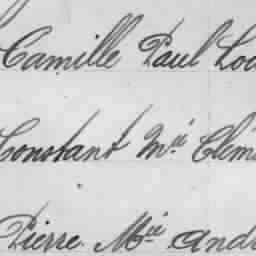 Camille Paul Lou
Constant Mie Cléme
Pierre Mie André